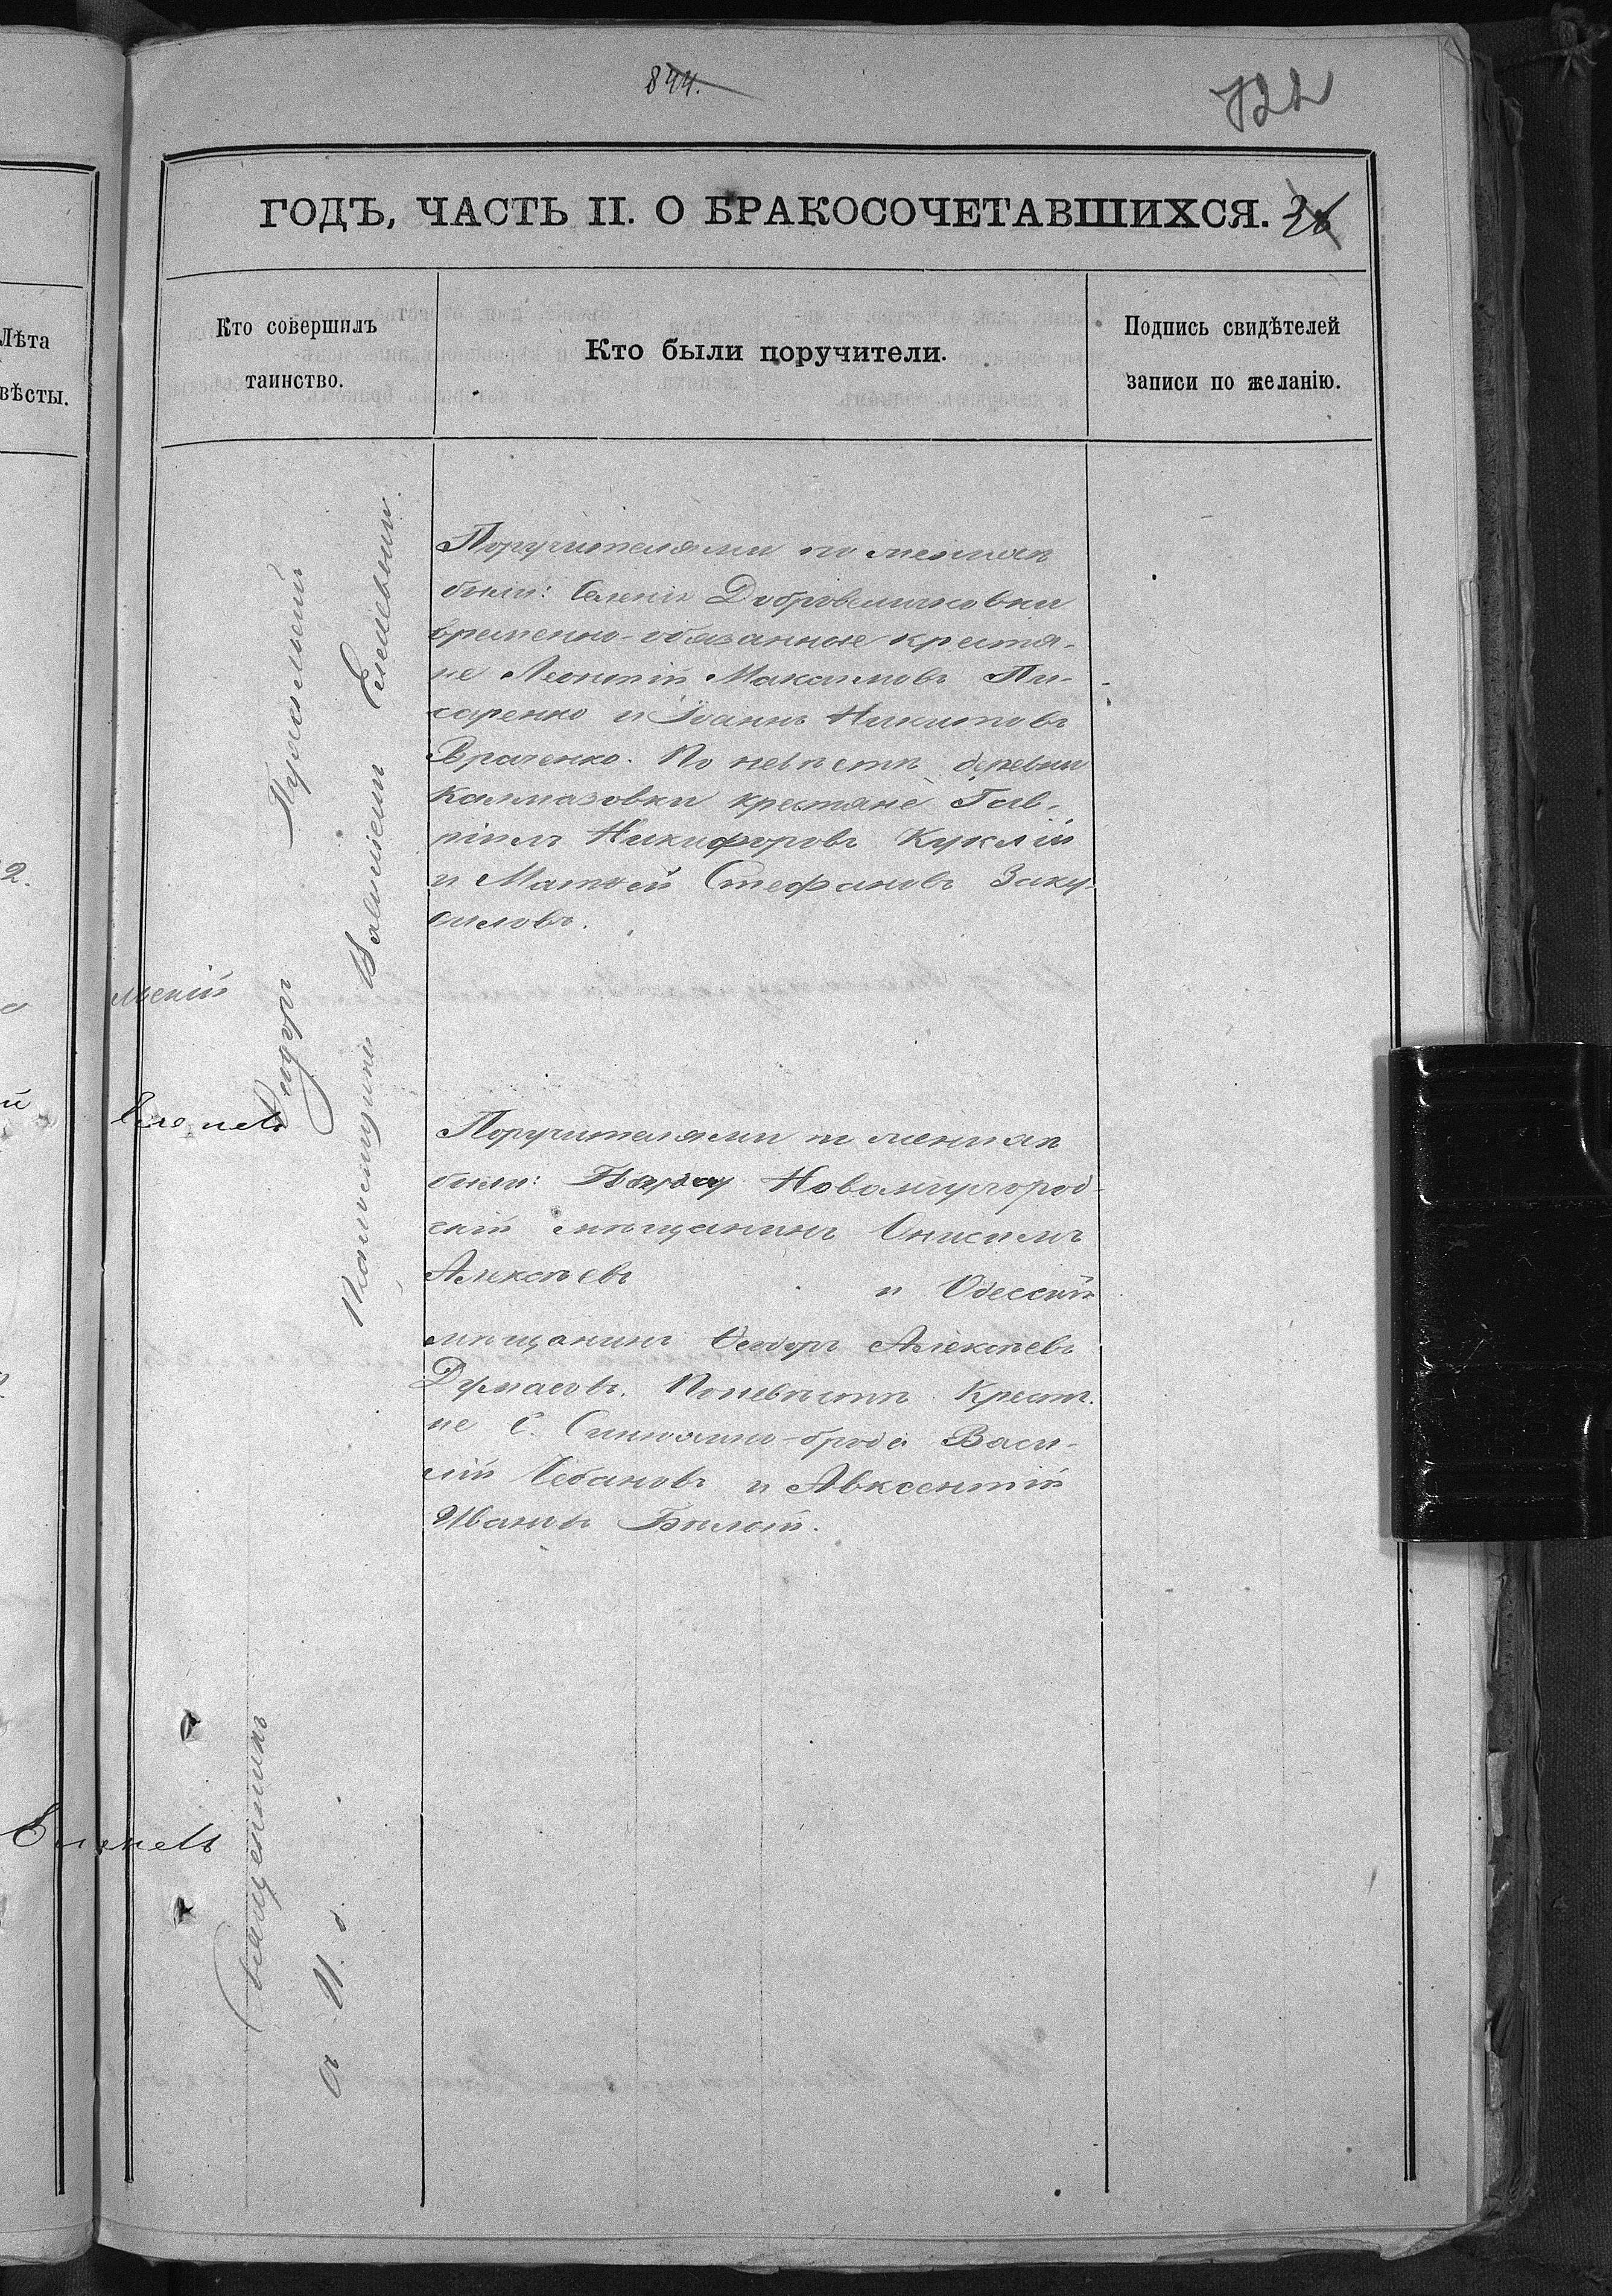 844.
722
ГОДЪ, ЧАСТЬ II. О БРАКОСОЧЕТАВШИХСЯ. 36
Лѣта
вѣсты.
Кто совершилъ
таинство.
Кто были поручители.
Подпись свидѣтелей
записи по желанію.
2.
Священникъ Сидоръ
Псаломщикъ Василій
Поручителями по женихѣ
были: Селенія Добровеличковки
временно-обязанные крестья-
не Леонтій Максимовъ Пи-
саренко и Іоаннъ Никитовъ
Враченко. По невѣстѣ деревни
Калмазовки крестяне Гав-
ріилъ Никифоровъ Куклій
и Матѳей Стефановъ Заку-
силовъ.
Поручителями по женихѣ
были: Новомиргород-
скій мѣщанинъ Онисимъ
Алексѣевъ и Одесскій
мѣщанинъ Ѳеодоръ Алексѣевъ
Дурмасовъ. По невѣстѣ Крестя-
не С. Синюхино-брода Васи-
лій Чебановъ и Авксентій
Ивановъ Бѣлый.